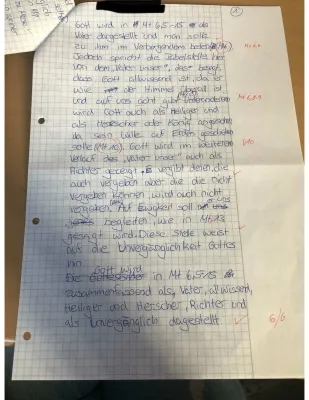 Gott wird in Mt 6,5-15 als
Vater dargestellt und man solle
zu ihm im Verborgenem beten
Jedoch spricht die Bibelstelle hier
von dem „Vater Unser", das
dass Gott allwissend ist, da er
wie der Himmel überall ist
und auf uns acht gibt
wird Gott auch als Heiliger und
als Herscher oder König angesehen
da sein Wille auf Erden geschehen
solle (Mt 10). Gott wird im weiteren
Verlauf des „Vater Unser" auch als
Richter gezeigt. Er vergibt denen, die
auch vergeben aber die die nicht
vergeben können, wird auch nicht
vergeben. Auf Ewigkeit soll
begleiten, wie in Mt 6,13
gesagt wird. Diese Stelle weist
auf die Unvergänglichkeit Gottes
hin
Gott wird
in Mt 6,5-15
zusammenfassend als, Vater, allwissend,
Heiliger und Herscher, Richter und
als Unvergänglich dargestellt
6/6